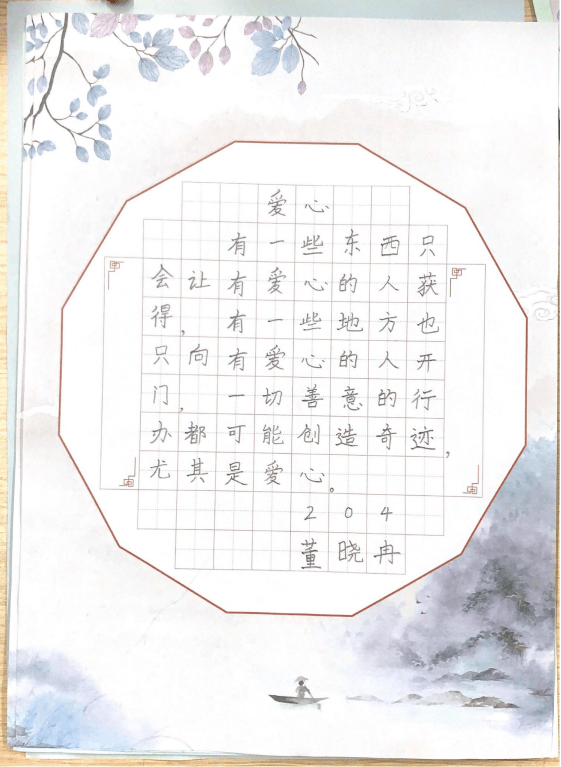 爱心
有一些东西只
会让有爱心的人获
得，有一些地方也
只向有爱心的人开
门，一切善意的行
办都可能创造奇迹，
尤其是爱心。
204
董晓冉